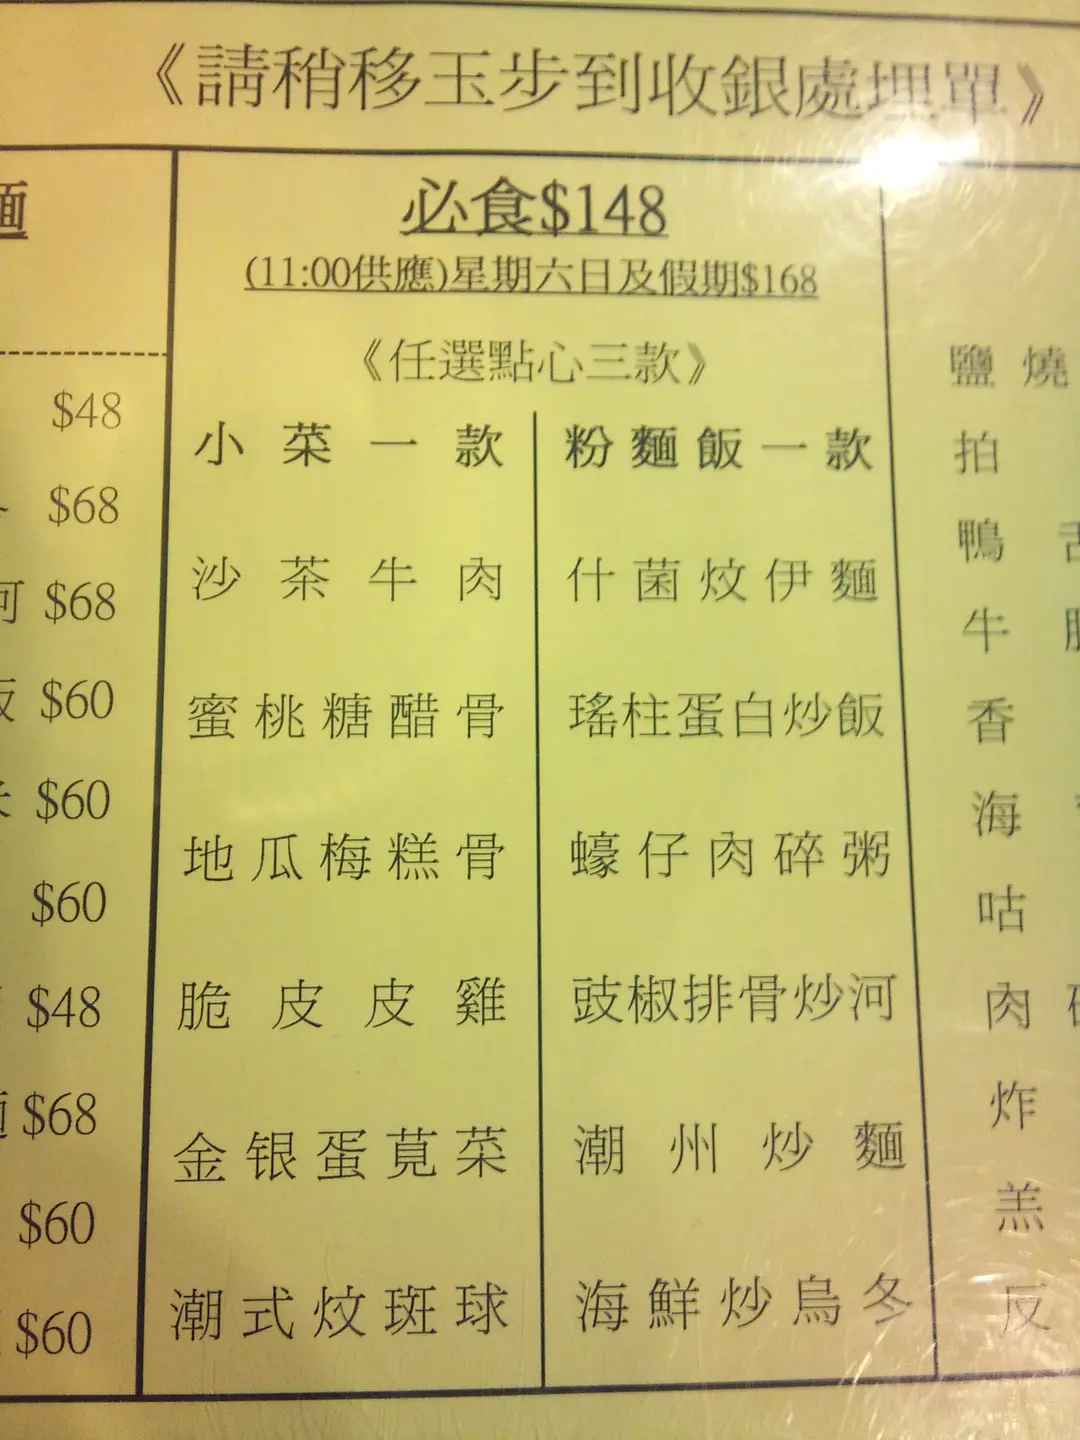 《請稍移玉步到收銀處埋單》
麵
$48
$68
河 $68
飯 $60
米 $60
$60
$48
麵 $68
$60
$60
必食$148
(11:00供應)星期六日及假期$168
《任選點心三款》
小菜一款
沙茶牛肉
蜜桃糖醋骨
地瓜梅糕骨
脆皮皮雞
金银蛋莧菜
潮式炆斑球
粉麵飯一款
什菌炆伊麵
瑤柱蛋白炒飯
蠔仔肉碎粥
豉椒排骨炒河
潮州炒麵
海鮮炒烏冬
鹽燒
拍
鴨舌
牛
香
海
咕
肉碎
炸
羔
反